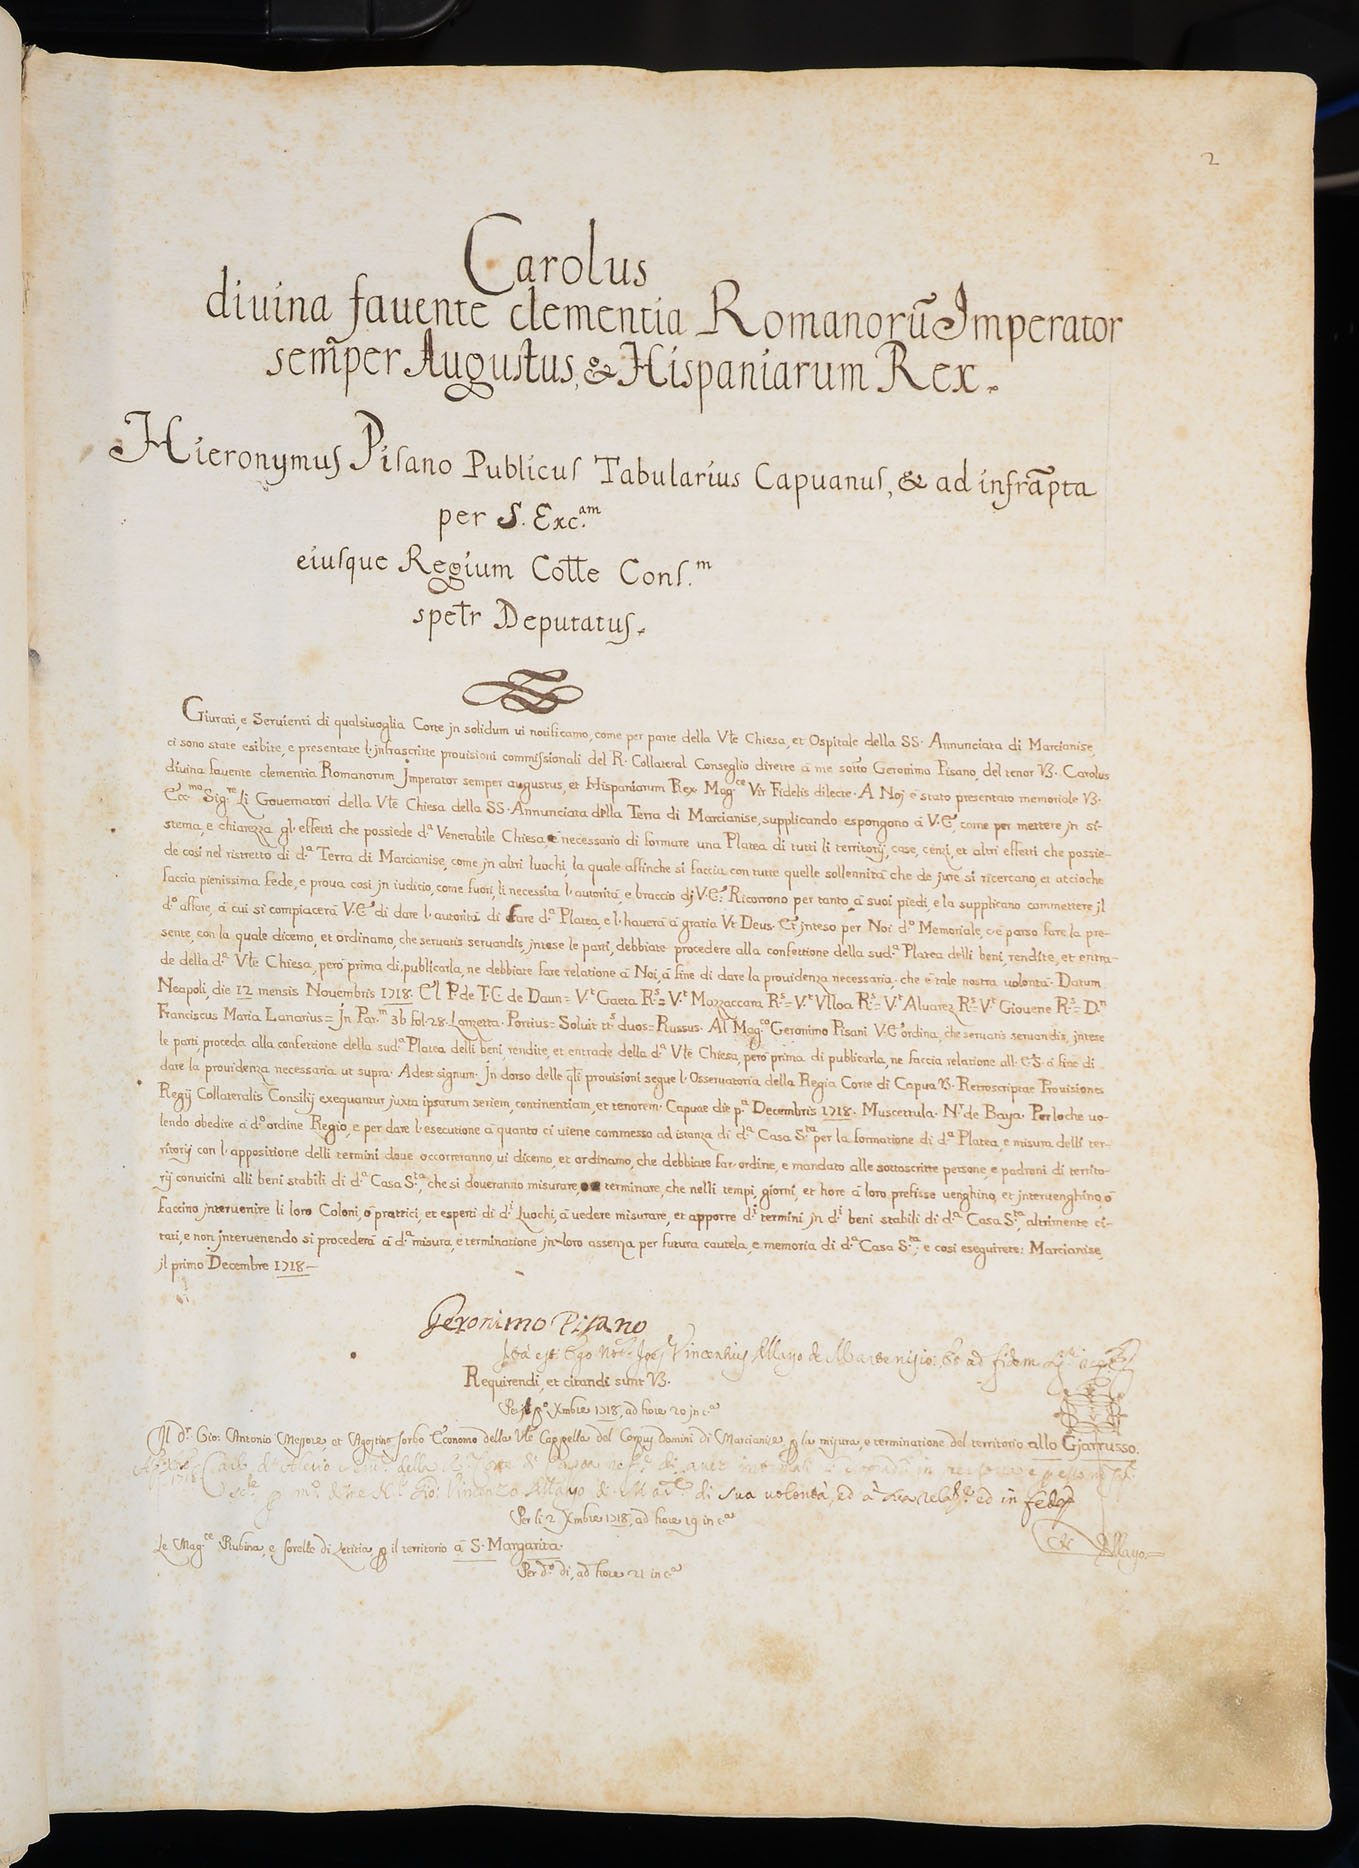 2
Carolus
diuina fauente clementia Romanorũ Imperator
sem̃per Augustus, & Hispaniarum Rex.
Hieronymus Pisano Publicus Tabularius Capuanus, & ad infrãpta
per S. Exc.am
eiusque Regium Cotte Cons.m
spetr Deputatus.
Giurati, e Seruienti di qualsiuoglia Corte jn solidum ui notificamo, come per parte della Vlè Chiesa, et Ospitale della SS. Annunciata di Marcianise,
ci sono state esibite, e presentate l'infrascritte prouisioni commissionali del R. Collateral Conseglio dirette à me sotto Geronimo Pisano, del tenor VZ. Carolus
diuina fauente clementia Romanorum Jmperator semper augustus, et Hispaniarum Rex. Mag.ce Vir Fidelis dilecte. A Noj è stato presentato memoriale VZ.
Ecc.mo Sig.re Li Gouernatori della Vlè Chiesa della SS. Annunciata della Terra di Marcianise, supplicando espongono à V.E., come per mettere jn si-
stema, e chiarezza gl'effetti che possiede d.a Venerabile Chiesa è necessario di formare una Platea di tutti li territorij, case, censi, et altri effetti che possie-
de così nel ristretto di d.a Terra di Marcianise, come jn altri luochi, la quale affinche si faccia con tutte quelle sollennità che de jure si ricercano, et accioche
faccia pienissima fede, e proua così jn iuditio, come fuori, li necessita l'autorità, e braccio di V.E. Ricorrono per tanto à suoi piedi, e la supplicano commettere jl
d.o affare, à cui si compiacerà V.E. di dare l'autorità di fare d.a Platea, e l'hauerà à gratia Vt Deus. Et jnteso per Noi d.o Memoriale, c'è parso fare la pre-
sente, con la quale dicemo, et ordinamo, che seruatis seruandis, jntese le parti, debbiate procedere alla confettione della sud.a Platea delli beni, rendite, et entra-
de della d.a Vlè Chiesa, però prima di publicarla, ne debbiate fare relatione à Noi, à fine di dare la prouidenza necessaria, che è tale nostra uolontà. Datum
Neapoli, die 12 mensis Nouembris 1718. El P. de T. C. de Daun = V.t Gaeta R.s = V.t Mazzaccara R.s = V.t Vlloa R.s = V.t Aluarez R.s = V.t Giouene R.s = D.n
Franciscus Maria Lanarius = Jn Par.m 3b fol. 28. Lametta. Portius = Soluit tt.s duos = Russus. Al Mag.co Geronimo Pisani V.E. ordina, che seruatis seruandis, jntese
le parti, proceda alla confettione della sud.a Platea delli beni, rendite, et entrade della d.a Vlè Chiesa, però prima di publicarla, ne faccia relatione all'E.S. à fine di
dare la prouidenza necessaria ut supra. Adest signum. Jn dorso delle qli prouisioni segue l'Osseruatoria della Regia Corte di Capua VZ. Retroscriptae Prouisiones
Regij Collateralis Consilij exequantur juxta ipsarum seriem, continentiam, et tenorem. Capuae die p.a Decembris 1718. Muscettula. N.r de Baya. Per loche uo-
lendo obedire à d.o ordine Regio, e per dare l'esecutione à quanto ci uiene commesso ad istanza di d.a Casa S.ta per la formatione di d.a Platea, e misura delli ter-
ritorij con l'appositione delli termini doue occorreranno, ui dicemo, et ordinamo, che debbiate far ordine, e mandato alle sottoscritte persone, e padroni di territo-
rij conuicini alli beni stabili di d.a Casa S.ta, che si doueranno misurare, terminare, che nelli tempi, giorni, et hore à loro prefisse uenghino, et jnteruenghino, ò
faccino jnteruenire li loro Coloni, ò prattici, et esperti di d.i Luochi, à uedere misurare, et apporre d.i termini jn d.i beni stabili di d.a Casa S.ta, altrimente ci-
tati, e non jnteruenendo si procederà à d.a misura, e terminatione jn loro assenza per futura cautela, e memoria di d.a Casa S.ta; e così eseguirete: Marcianise,
jl primo Decembre 1718—
Geronimo Pisano
Ità est Ego Vincentius Allayo de Marcenisio: et ad fidem
Requirendi, et citandi sunt VZ.
Per p.o Xmbre 1718, ad hore 20 jn c.a
Jl d.r Gio: Antonio Messore, et Agostino sorbo Economo della Vlè Cappella del Corpus domini di Marcianise p la misura, e terminatione del territorio allo Gjarrusso.
Vincenzo Allayo di sua uolontà, ed à ed in fede
Per li 2 Xmbre 1718, ad hore 19 in c.a
Allayo
Le Mag.ce Rubina, e sorelle di Letitia p il territorio à S. Margarita.
Per d.o dì, ad hore 21 in c.a